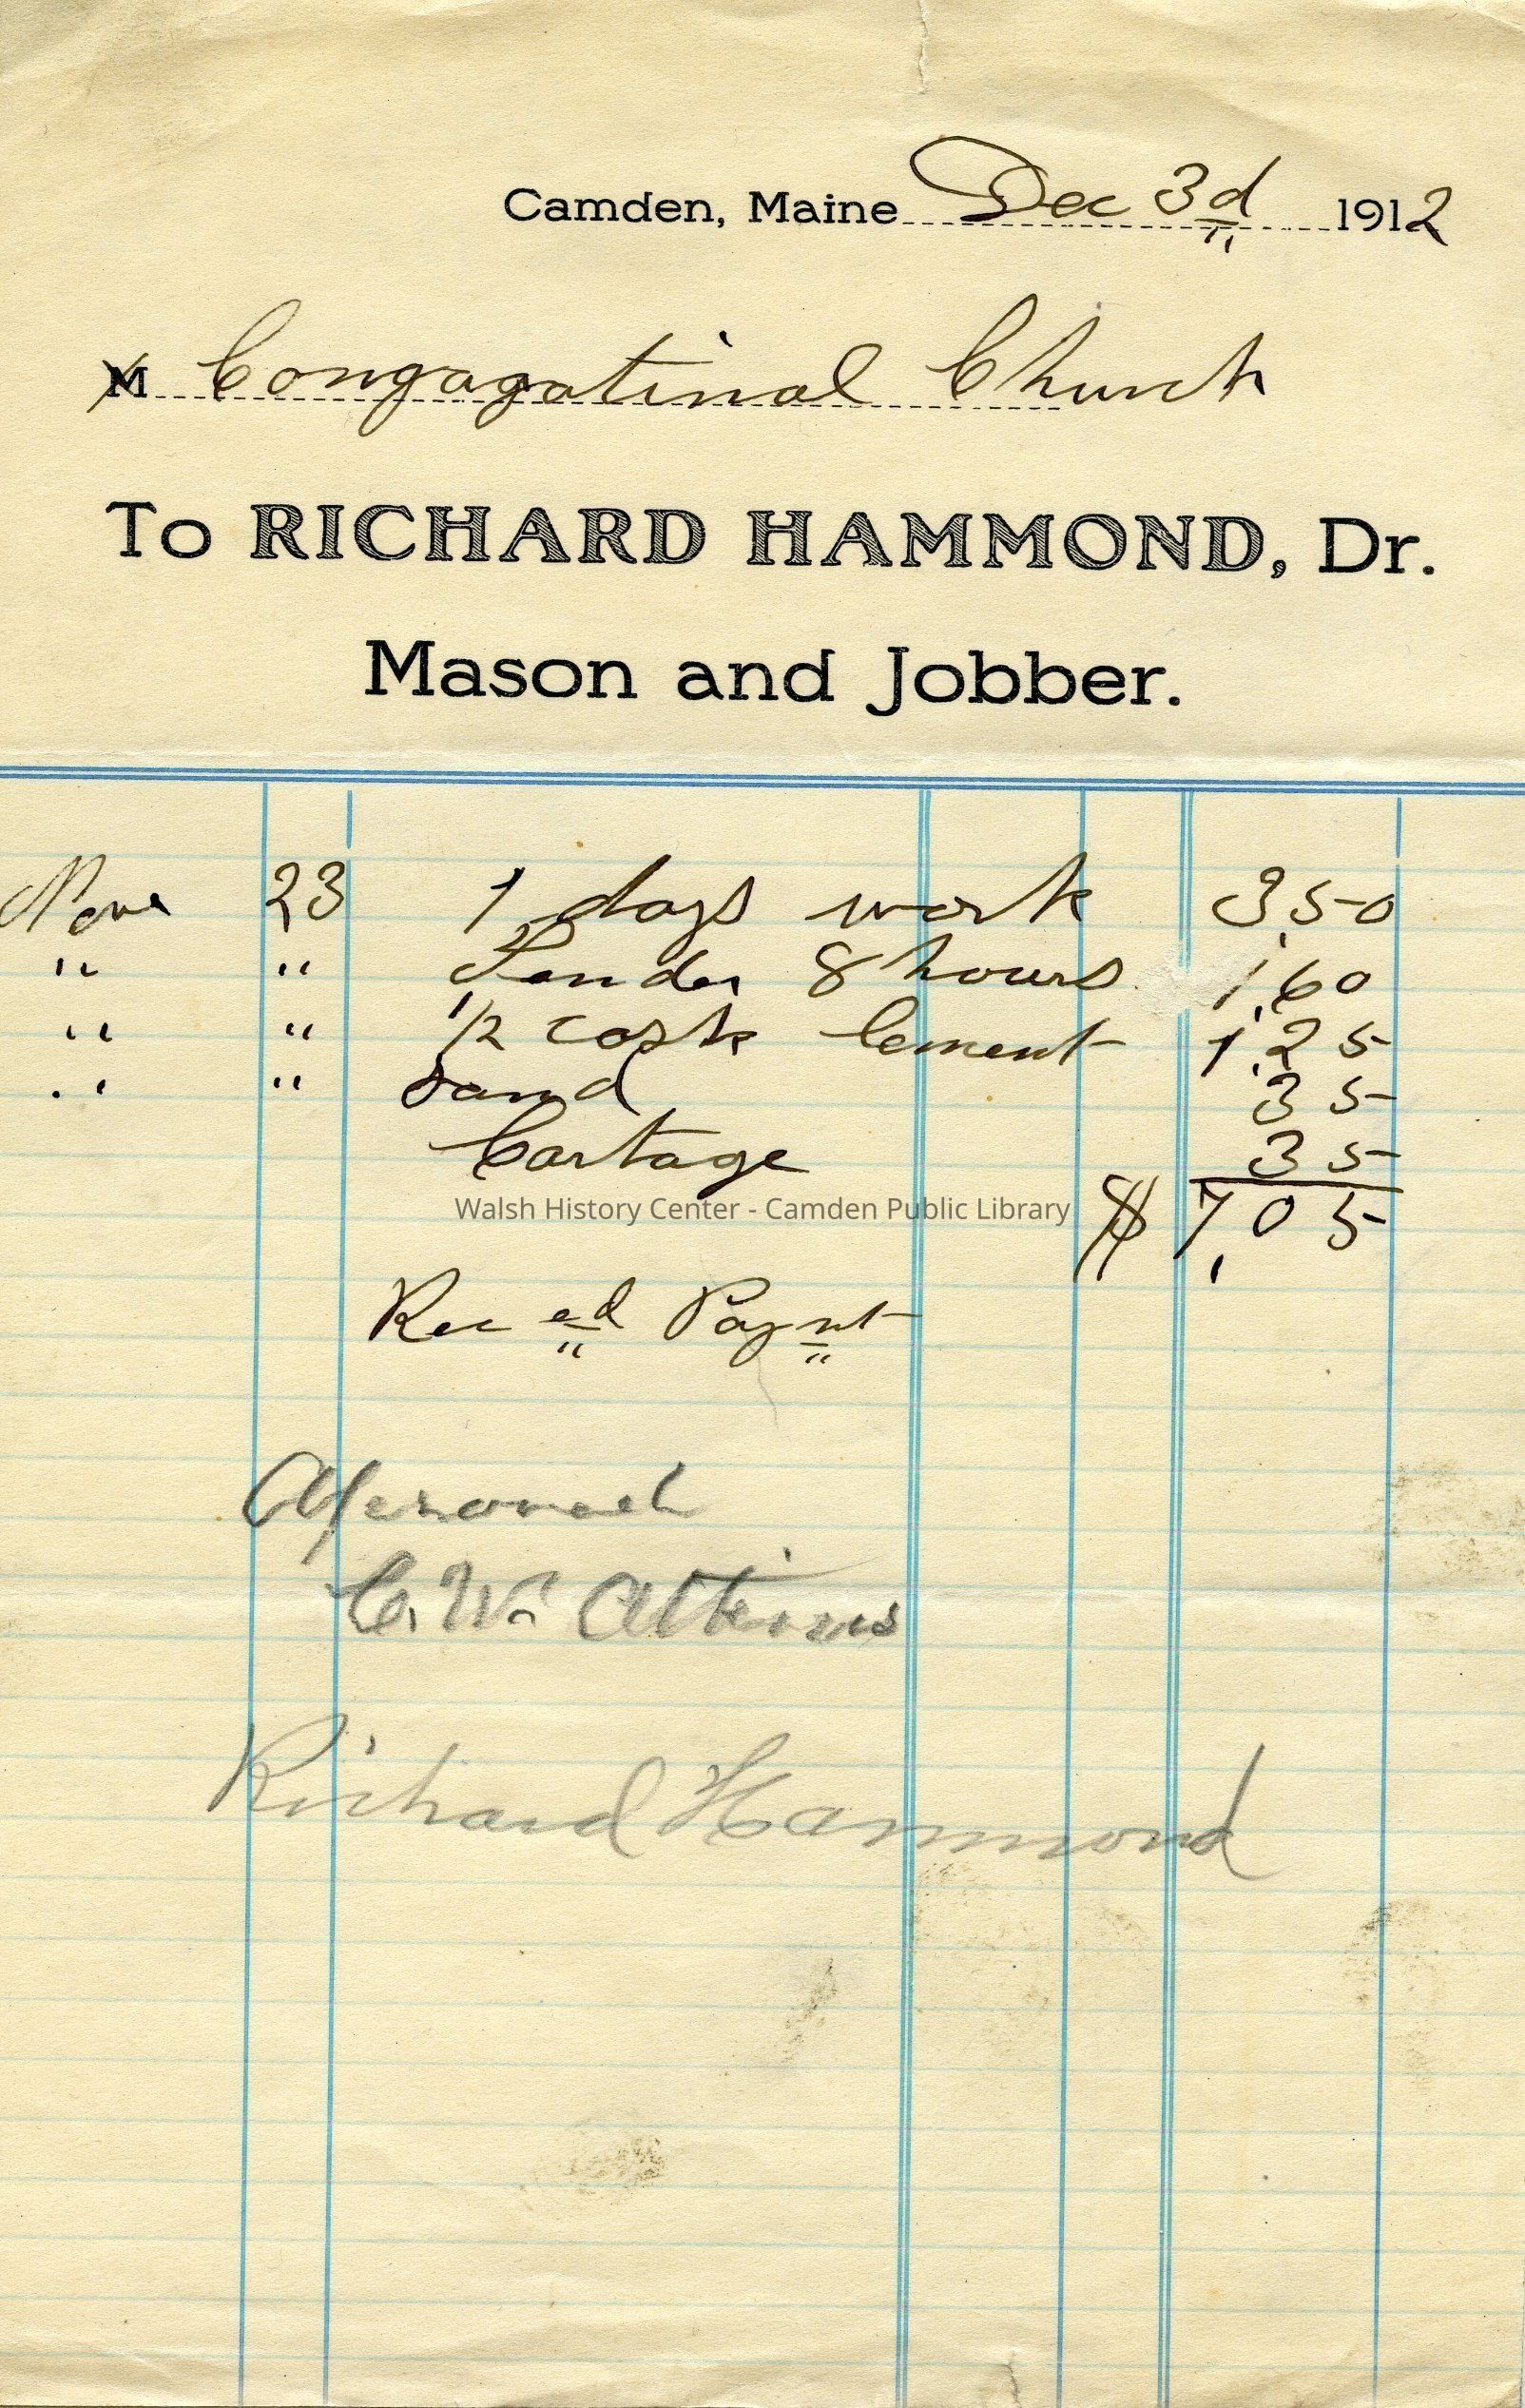 Camden, Maine Dec 3d 1912
M Congagatinal Church
To RICHARD HAMMOND, Dr.
Mason and Jobber.
Nov 23 1 days work 3.50
" " Tender 8 hours 1.60
" " 1/2 cask Cement 1.25
" " Sand 35
Cartage 35
Walsh History Center - Camden Public Library
$ 7.05
Rec ed Paymt
Approved
C. W. Atkins
Richard Hammond